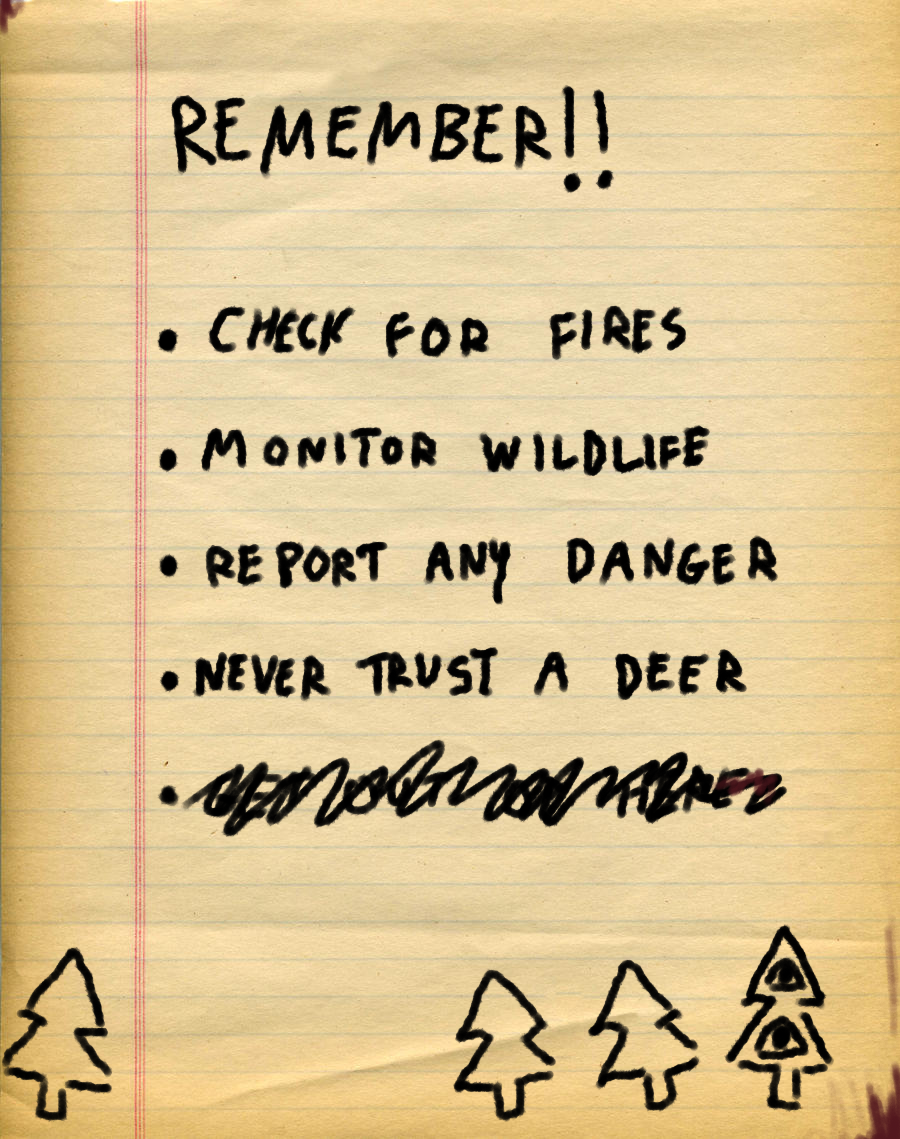 REMEMBER!!
• CHECK FOR FIRES
• MONITOR WILDLIFE
• REPORT ANY DANGER
• NEVER TRUST A DEER